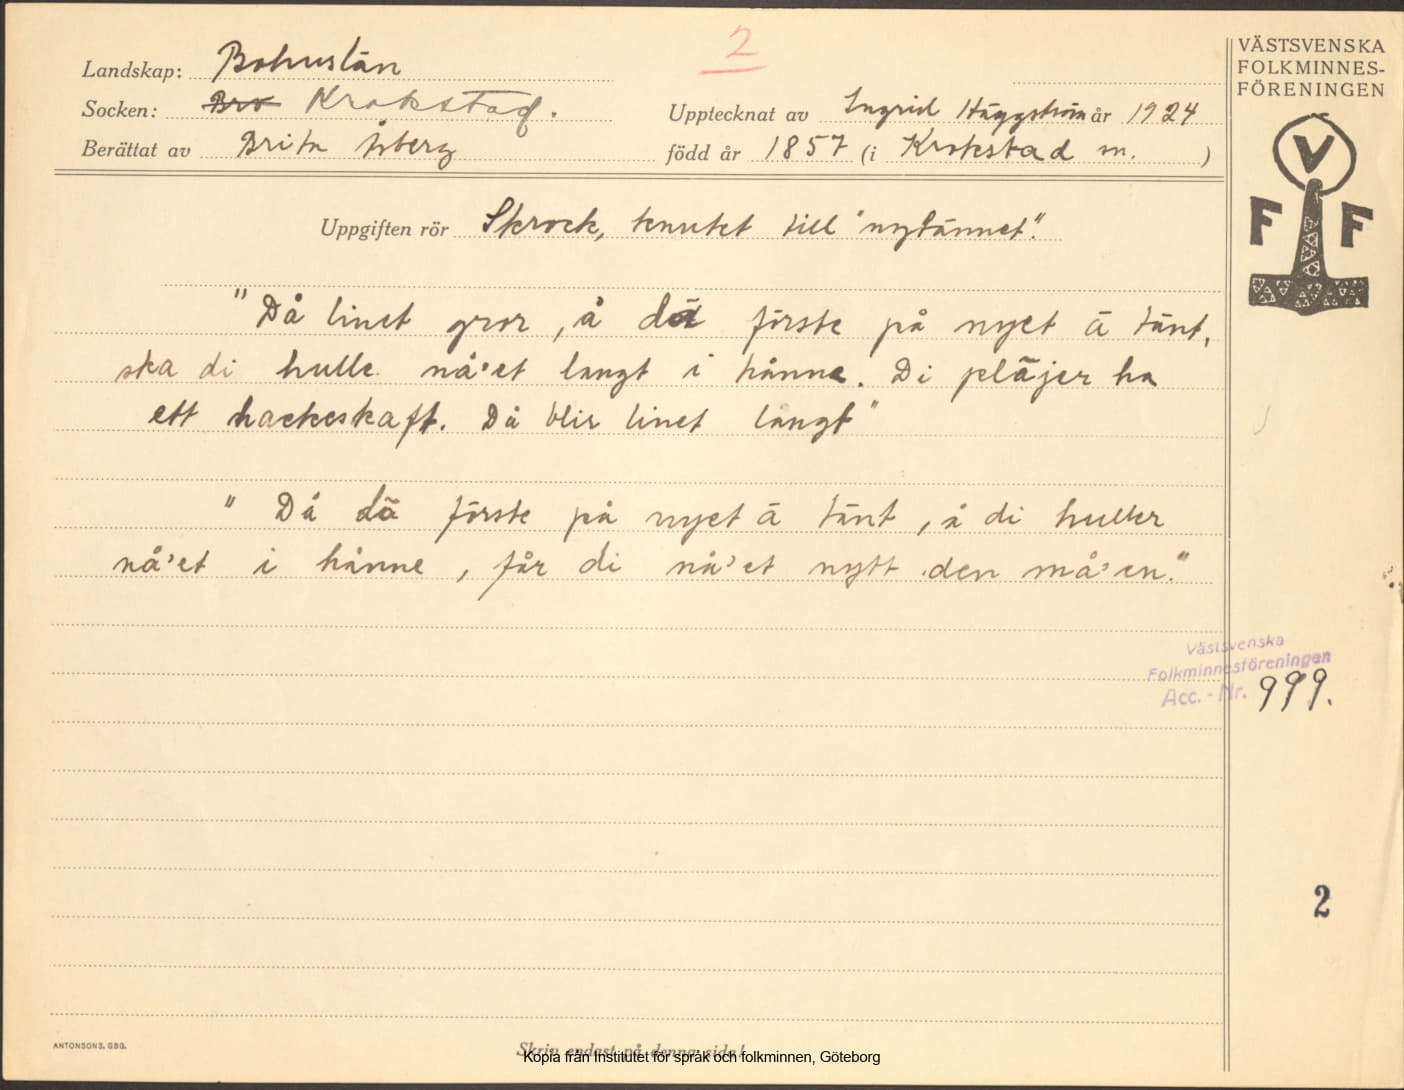 2
VÄSTSVENSKA
FOLKMINNES-
FÖRENINGEN
V
F F
Landskap: Bohuslän
Socken: Bro Krokstad.
Upptecknat av Ingrid Häggström år 1924
Berättat av Brita Åberg född år 1857 (i Krokstad m. )
Uppgiften rör Skrock, knutet till "nytännet".
"Då linet gror, å dä förste på nyet ä tänt,
ska di hulle nå'et langt i hånne. Di pläjer ha
ett hackeskaft. Då blir linet langt"
"Då dä förste på nyet ä tänt, å di huller
nå'et i hånne, får di nå'et nytt den må'en."
Västsvenska
Folkminnesföreningen
Acc. - Nr. 999.
2
ANTONSONS, GBG.
Skriv endast på denna sida!
Kopia från Institutet för språk och folkminnen, Göteborg